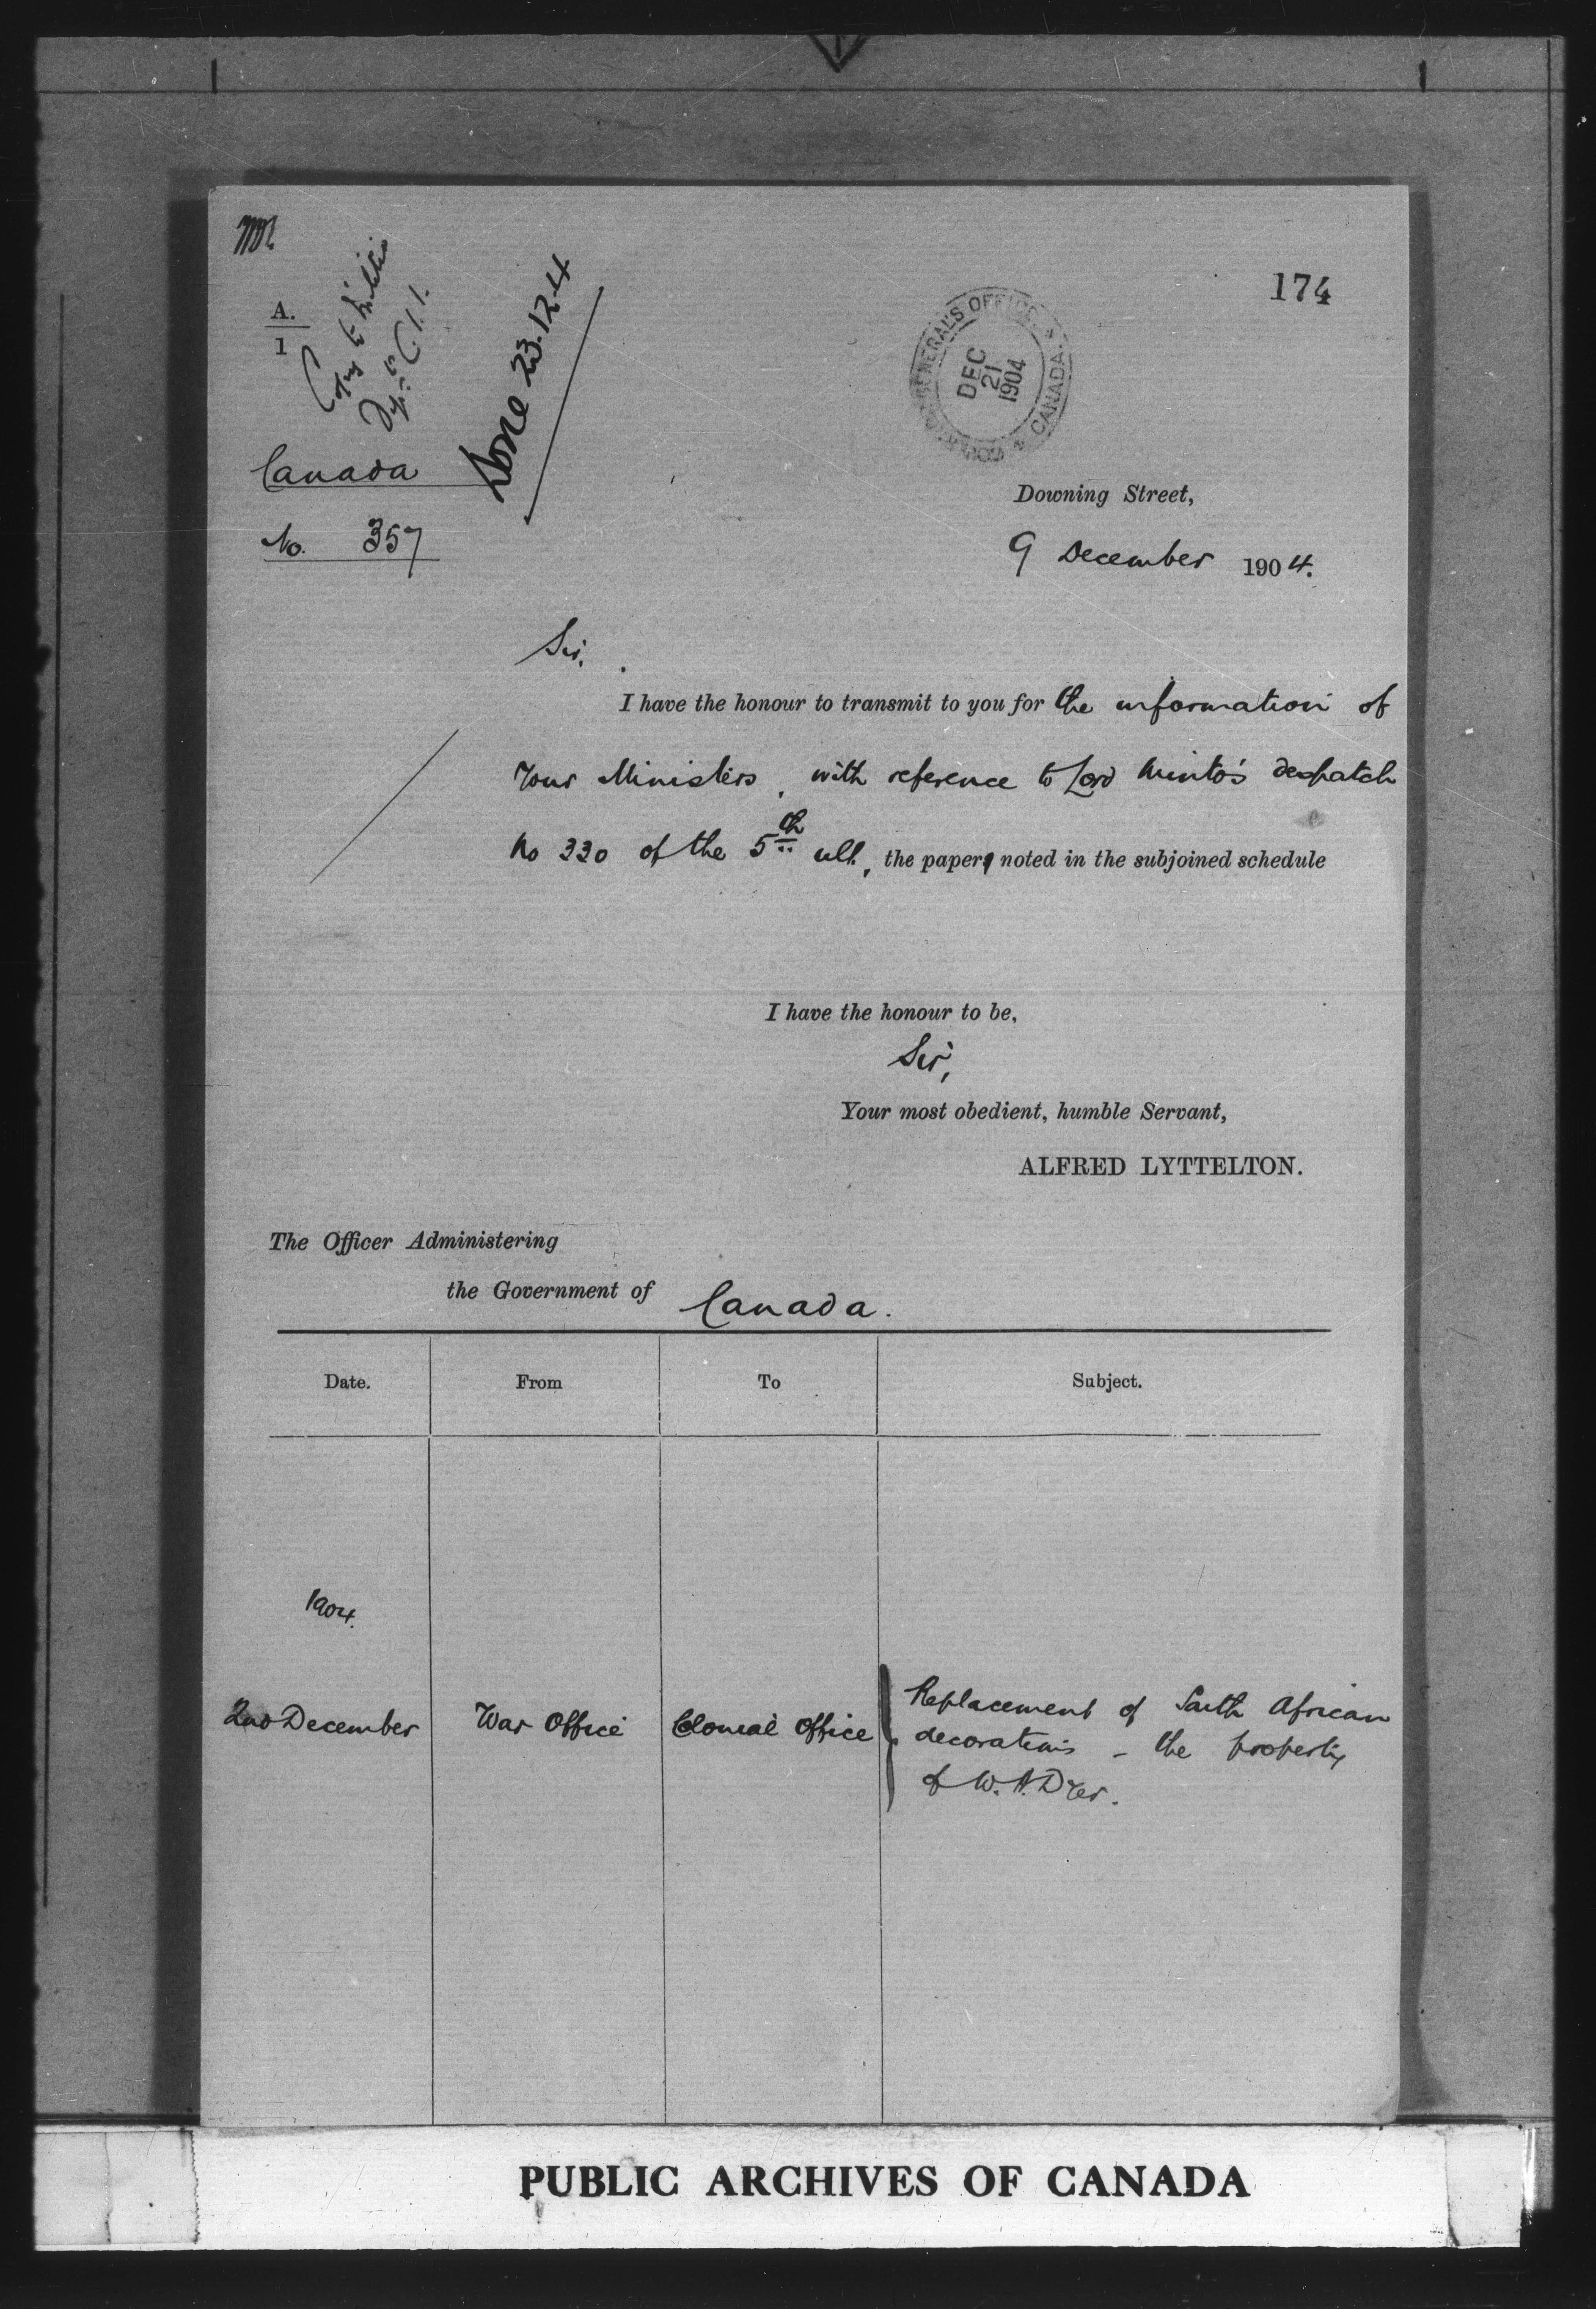 174
A.
1
Copy to Militia
Dept
Done 23.12.4
GOVERNOR GENERAL'S OFFICE
CANADA
DEC
21
1904
Canada
No. 357
Downing Street,
9 December 1904.
Sir,
I have the honour to transmit to you for the information of
Your Ministers, with reference to Lord Minto's despatch
No 330 of the 5th ult, the paper noted in the subjoined schedule
I have the honour to be,
Sir,
Your most obedient, humble Servant,
ALFRED LYTTELTON.
The Officer Administering
the Government of Canada.
Date. From To Subject.
1904.
2nd December War Office Colonial Office Replacement of South African
decorations - the property
of W. A. Dyer.
PUBLIC ARCHIVES OF CANADA